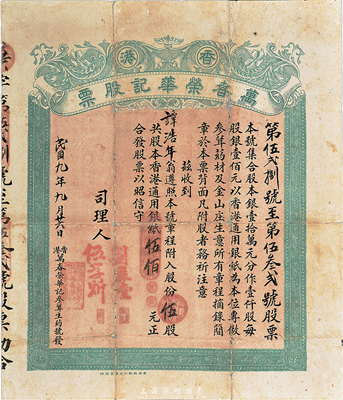 香港
萬春榮華記股票
第伍弍捌號至第伍叁弍號股票
本號集合股本銀壹拾萬元分作壹仟股每
股銀壹佰元以香港通用銀紙為本位專做
參茸葯材及金山庄生意所有章程摘錄簡
章於本票背面凡附股者務祈注意
茲收到
諱浩年翁遵照本號章程附入股份伍股
共股本香港通用銀紙伍佰元正
合發股票以昭信守
司理人
民國九年九月廿六日
香港萬春榮華記參茸生葯號發